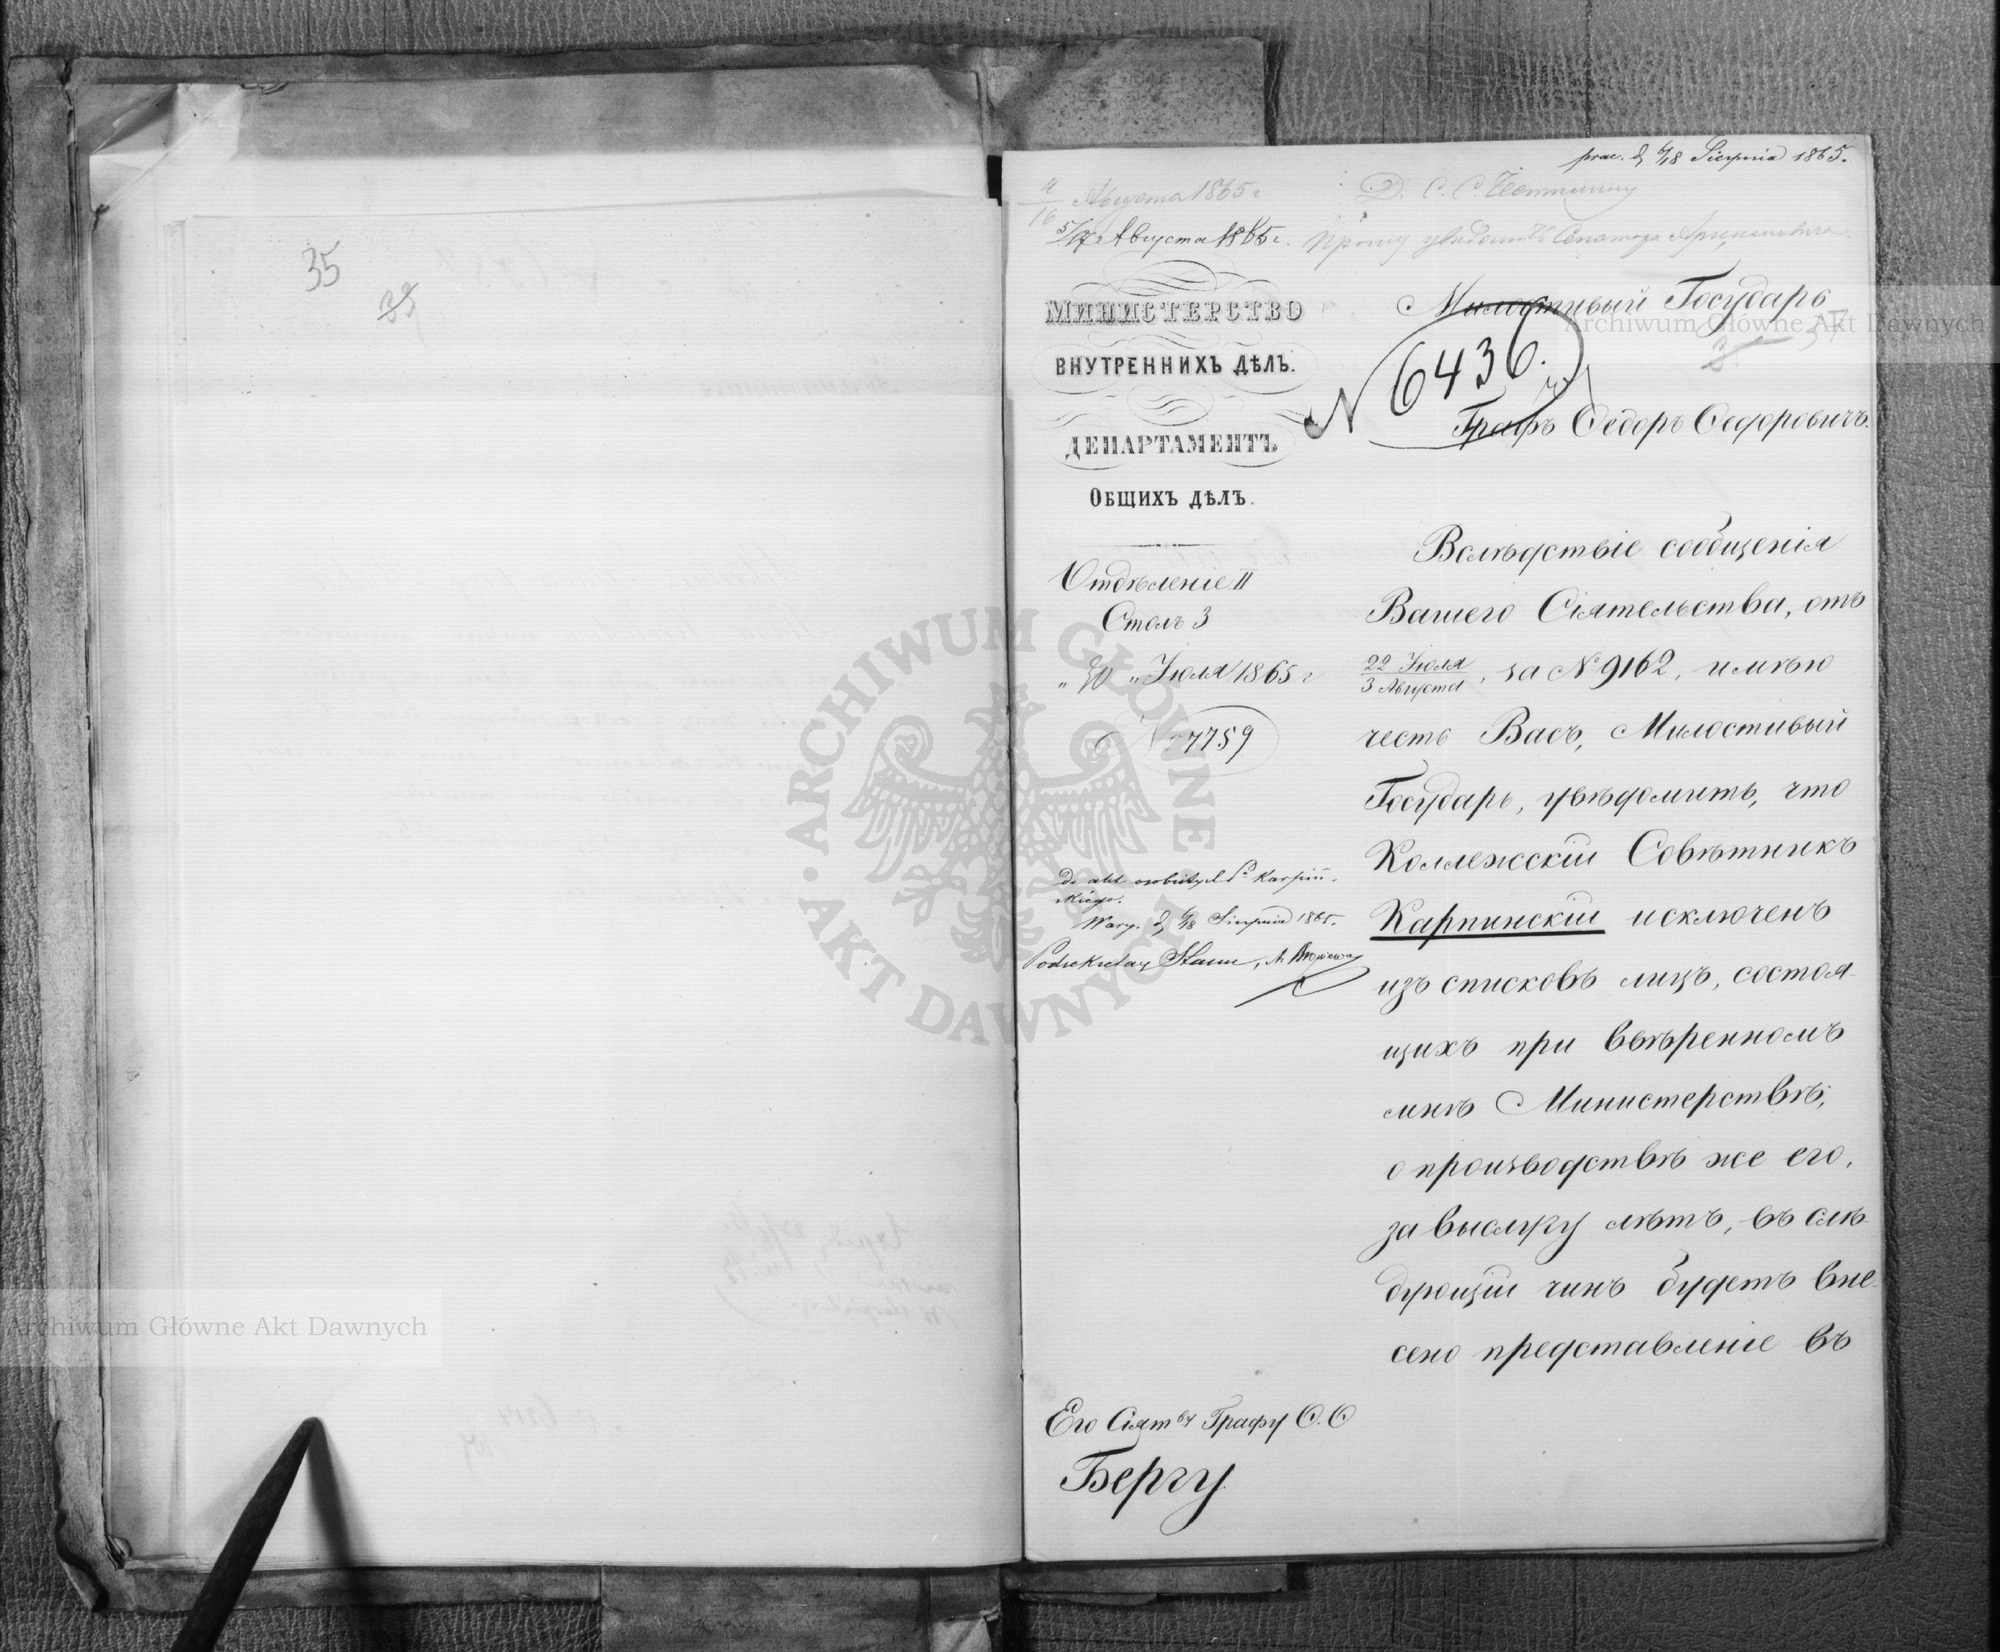 35
prac. d. 6/18 Sierpnia 1865.
4/16 Августа 1865 г
Д. С. С.
5/17 Августа 1865 г.
Прошу увѣдомить Сенатора
МИНИСТЕРСТВО
ВНУТРЕННИХЪ ДѢЛЪ.
ДЕПАРТАМЕНТЪ
ОБЩИХЪ ДѢЛЪ.
Отдѣленіе II
Столъ 3
„30„ Іюля 1865 г
№ 7759
Милостивый Государь
№ 6436.
Графъ Ѳедоръ Ѳедоровичъ.
Вслѣдствіе сообщенія
Вашего Сіятельства, отъ
22 Іюля
3 Августа, за № 9162, имѣю
честь Васъ, Милостивый
Государь, увѣдомить, что
Коллежскій Совѣтникъ
Карпинскій исключенъ
изъ списковъ лицъ, состоя-
щихъ при ввѣренномъ
мнѣ Министерствѣ,
о производствѣ же его,
за выслугу лѣтъ, въ слѣ-
дующій чинъ будетъ вне-
сено представленіе въ
do akt osobistych Pa Karpiń-
skiego.
Warsz. d. 6/18 Sierpnia 1865.
Podsekretarz Stanu,
Его Сіятву Графу Ѳ. Ѳ
Бергу
Archiwum Główne Akt Dawnych
Archiwum Główne Akt Dawnych
ARCHIWUM GŁÓWNE AKT DAWNYCH